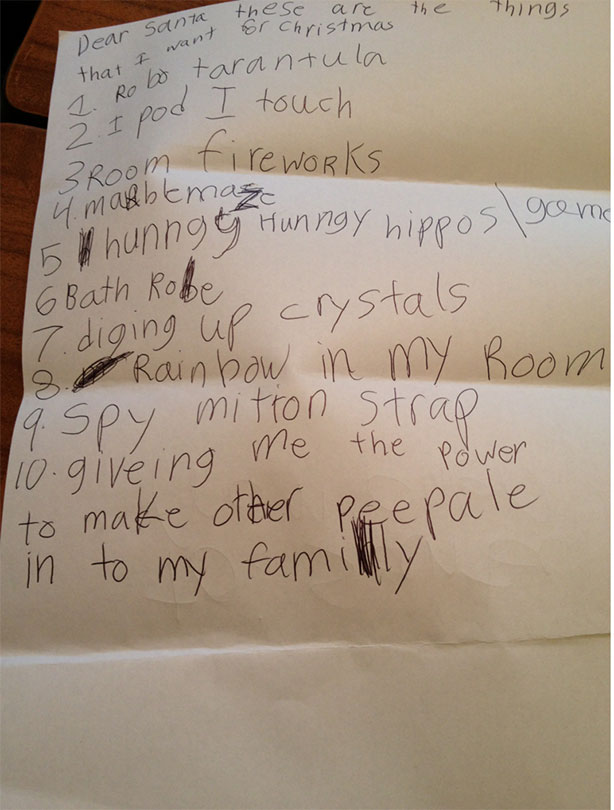 Dear Santa these are the things
that I want for christmas
1. Robo tarantula
2. I pod I touch
3 Room fireworks
4. marblemaze
5 hunngy Hunngy hippos\game
6 Bath Robe
7. diging up crystals
8. Rainbow in my Room
9. Spy mitron strap
10. giveing me the power
to make other peepale
in to my family